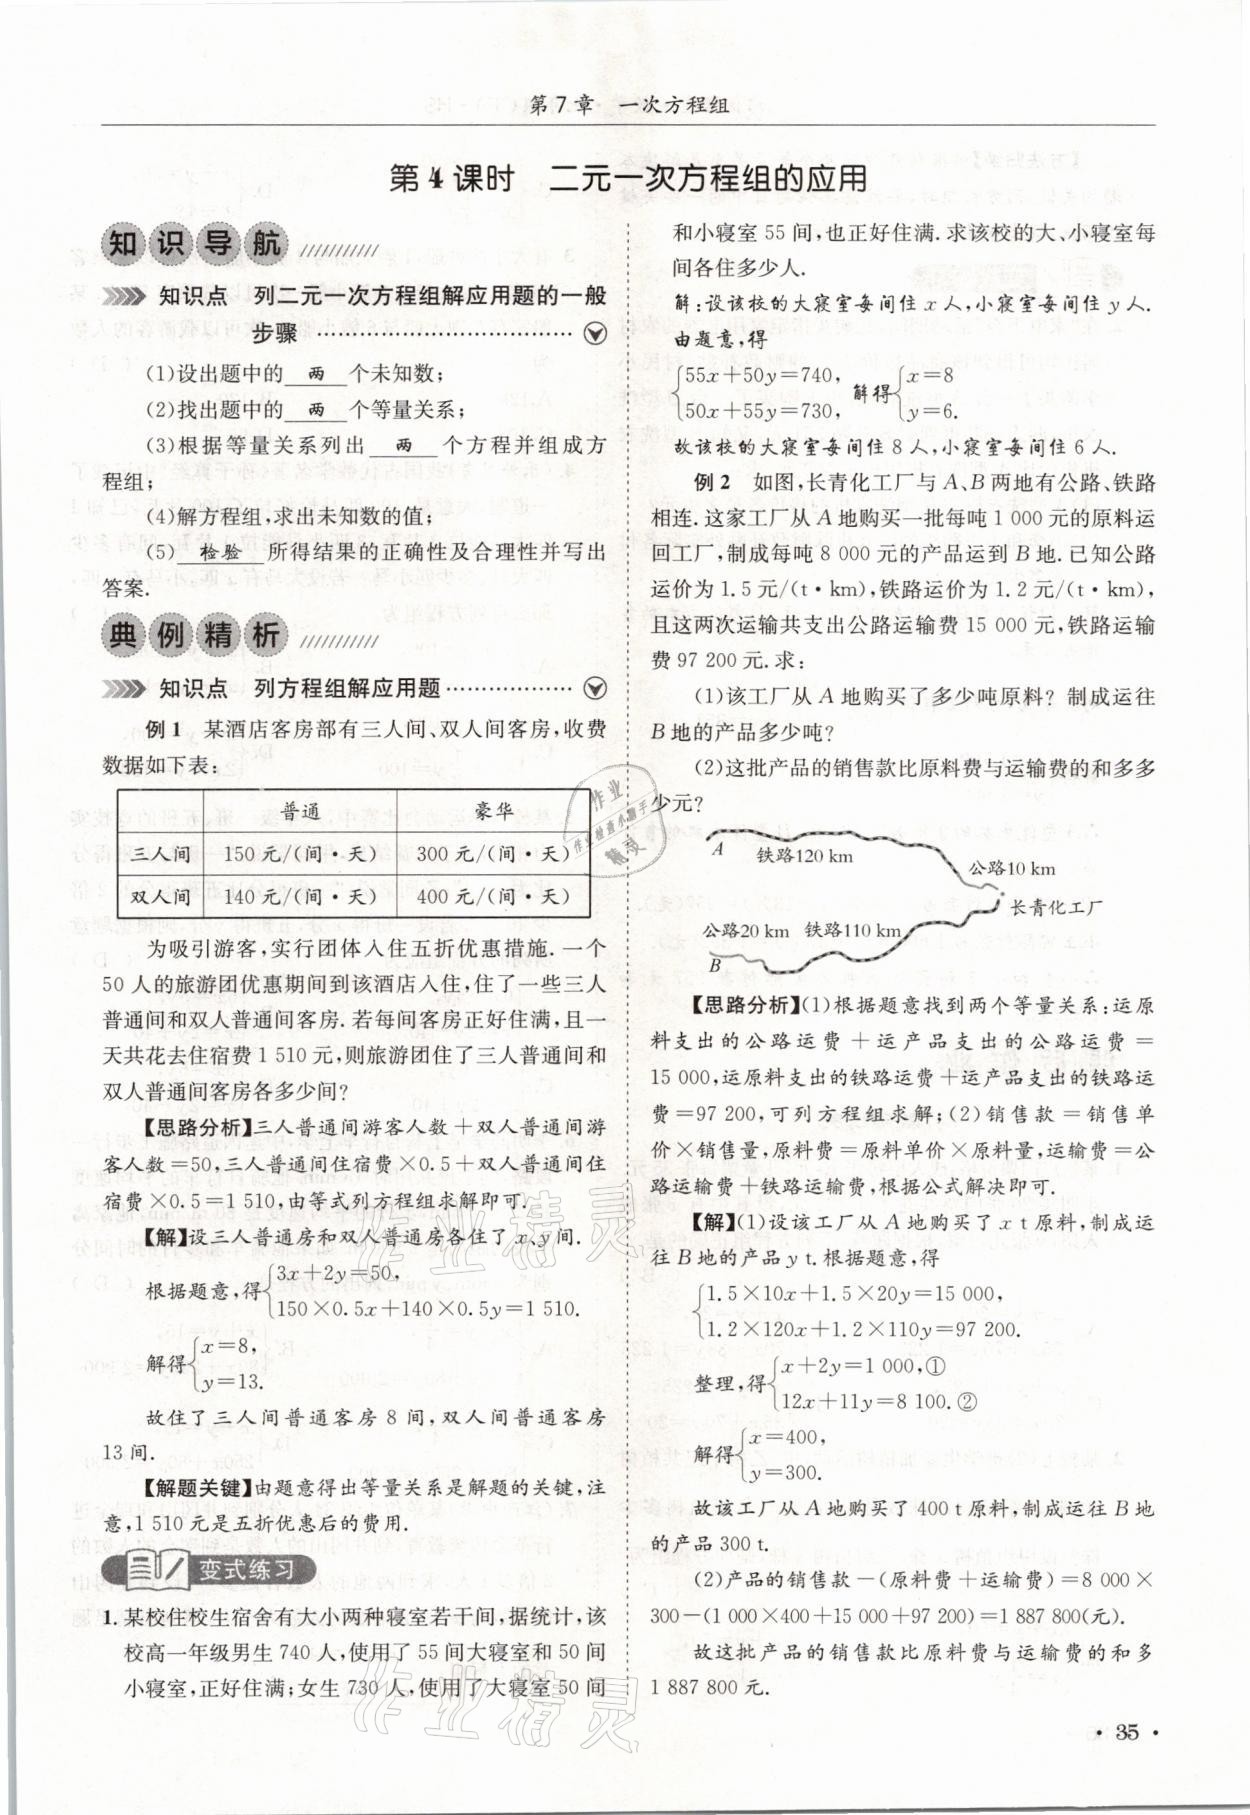 第7章　一次方程组
第4课时　二元一次方程组的应用
知识导航
知识点　列二元一次方程组解应用题的一般
步骤
(1)设出题中的 两 个未知数;
(2)找出题中的 两 个等量关系;
(3)根据等量关系列出 两 个方程并组成方
程组;
(4)解方程组,求出未知数的值;
(5) 检验 所得结果的正确性及合理性并写出
答案.
典例精析
知识点　列方程组解应用题
例1　某酒店客房部有三人间、双人间客房,收费
数据如下表:
普通　豪华
三人间　150元/(间·天)　300元/(间·天)
双人间　140元/(间·天)　400元/(间·天)
为吸引游客,实行团体入住五折优惠措施.一个
50人的旅游团优惠期间到该酒店入住,住了一些三人
普通间和双人普通间客房.若每间客房正好住满,且一
天共花去住宿费1 510元,则旅游团住了三人普通间和
双人普通间客房各多少间?
【思路分析】三人普通间游客人数+双人普通间游
客人数=50,三人普通间住宿费×0.5+双人普通间住
宿费×0.5=1 510,由等式列方程组求解即可.
【解】设三人普通房和双人普通房各住了x、y间.
根据题意,得{3x+2y=50,
150×0.5x+140×0.5y=1 510.
解得{x=8,
y=13.
故住了三人间普通客房8间,双人间普通客房
13间.
【解题关键】由题意得出等量关系是解题的关键,注
意,1 510元是五折优惠后的费用.
变式练习
1.某校住校生宿舍有大小两种寝室若干间,据统计,该
校高一年级男生740人,使用了55间大寝室和50间
小寝室,正好住满;女生730人,使用了大寝室50间
和小寝室55间,也正好住满.求该校的大、小寝室每
间各住多少人.
解:设该校的大寝室每间住x人,小寝室每间住y人.
由题意,得
{55x+50y=740,
50x+55y=730,
解得{x=8
y=6.
故该校的大寝室每间住8人,小寝室每间住6人.
例2　如图,长青化工厂与A、B两地有公路、铁路
相连.这家工厂从A地购买一批每吨1 000元的原料运
回工厂,制成每吨8 000元的产品运到B地.已知公路
运价为1.5元/(t·km),铁路运价为1.2元/(t·km),
且这两次运输共支出公路运输费15 000元,铁路运输
费97 200元.求:
(1)该工厂从A地购买了多少吨原料?制成运往
B地的产品多少吨?
(2)这批产品的销售款比原料费与运输费的和多多
少元?
A　铁路120 km
公路10 km
长青化工厂
公路20 km　铁路110 km
B
【思路分析】(1)根据题意找到两个等量关系:运原
料支出的公路运费+运产品支出的公路运费=
15 000,运原料支出的铁路运费+运产品支出的铁路运
费=97 200,可列方程组求解;(2)销售款=销售单
价×销售量,原料费=原料单价×原料量,运输费=公
路运输费+铁路运输费,根据公式解决即可.
【解】(1)设该工厂从A地购买了x t原料,制成运
往B地的产品y t.根据题意,得
{1.5×10x+1.5×20y=15 000,
1.2×120x+1.2×110y=97 200.
整理,得{x+2y=1 000,①
12x+11y=8 100.②
解得{x=400,
y=300.
故该工厂从A地购买了400 t原料,制成运往B地
的产品300 t.
(2)产品的销售款-(原料费+运输费)=8 000×
300-(1 000×400+15 000+97 200)=1 887 800(元).
故这批产品的销售款比原料费与运输费的和多
1 887 800元.
·35·
作业精灵
作业精灵